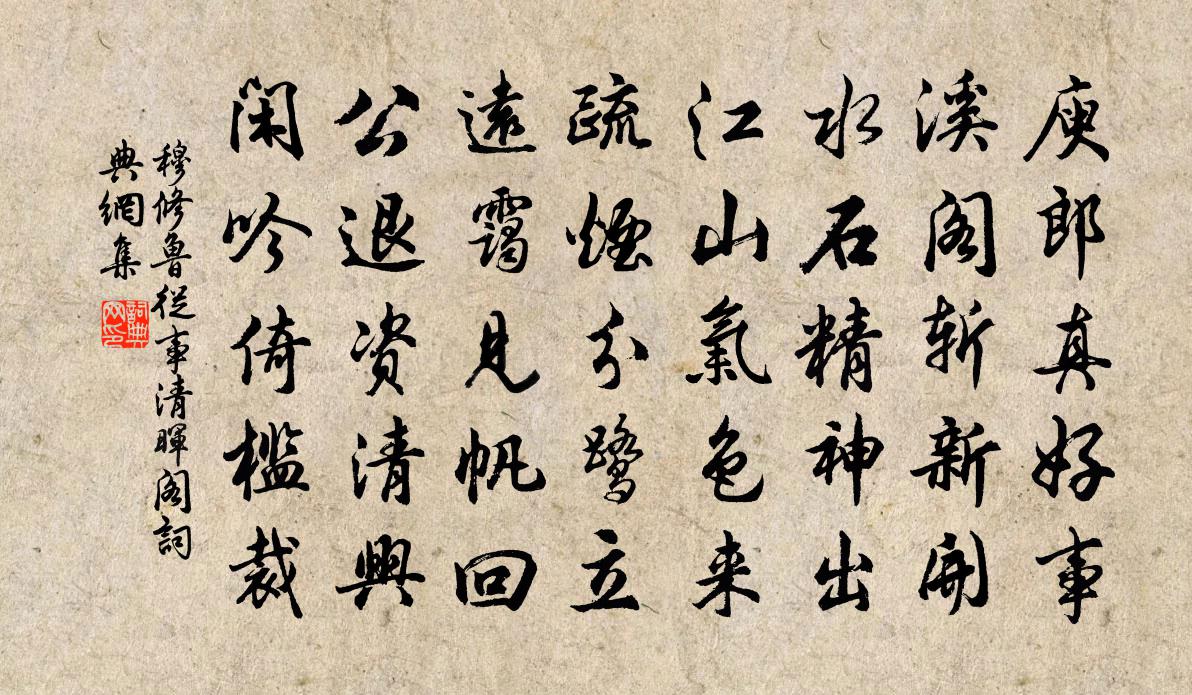 庾郎真好事
溪阁斩新開
水石精神出
江山氣色来
疏煙分鹭立
遠靄見帆回
公退资清興
閑吟倚檻裁
穆修魯從事清暉阁詞
典網集
詞典网印